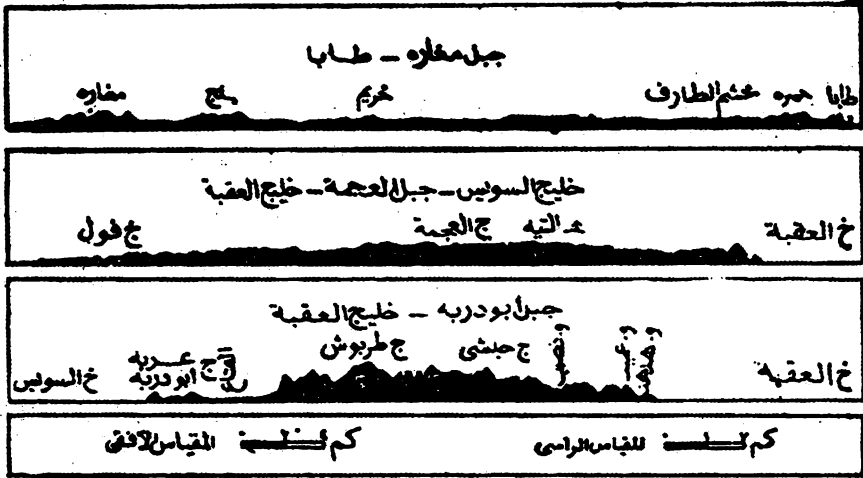 جبل مغاره - طابا
طابا حمره مخشم الطارف خريم يلج مغاره
خليج السويس - جبل العجمة - خليج العقبة
خ العقبة هـ التيه ج العجمة ج فول
جبل أبو دربه - خليج العقبة
خ العقبة و. نصب ج حبشى ج طربوش ج عربه ج أبو دربه خ السويس
كم المقياس الراسى كم المقياس الأفقى